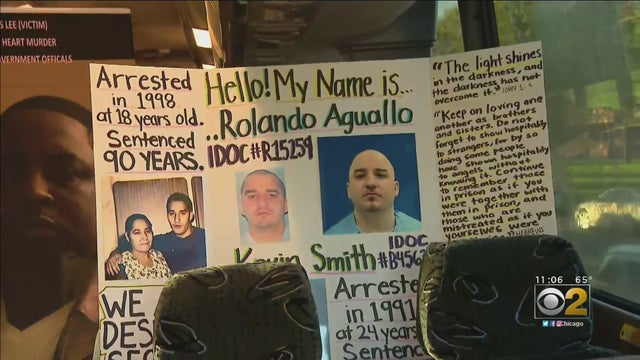 S LEE (VICTIM)
HEART MURDER
VERNMENT OFFICALS
Arrested
in 1998
at 18 years old.
Sentenced
90 YEARS.
Hello! My Name is...
..Rolando Aguallo
IDOC#R15259
"The light shines
in the darkness, and
the darkness has not
overcome it." JOHN 1:
"Keep on loving one
another as brothers
and sisters. Do not
forget to show hospitality
to strangers, for by so
doing some people
have shown hospitality
to angels without
knowing it. Continue
to remember those
in prison as if you
were together with
them in prison, and
those who are
mistreated as if you
yourselves were
HEBREWS
Kevin Smith
IDOC
Arreste
in 1991
at 24 years
Sentenc
WE
DES
11:06 65°
CBS 2
Chicago